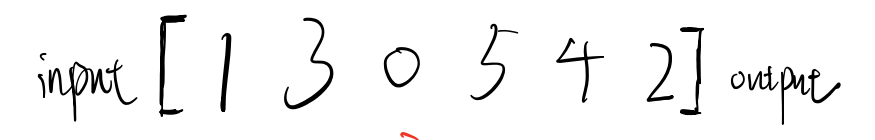 input [ 1 3 0 5 4 2 ] output